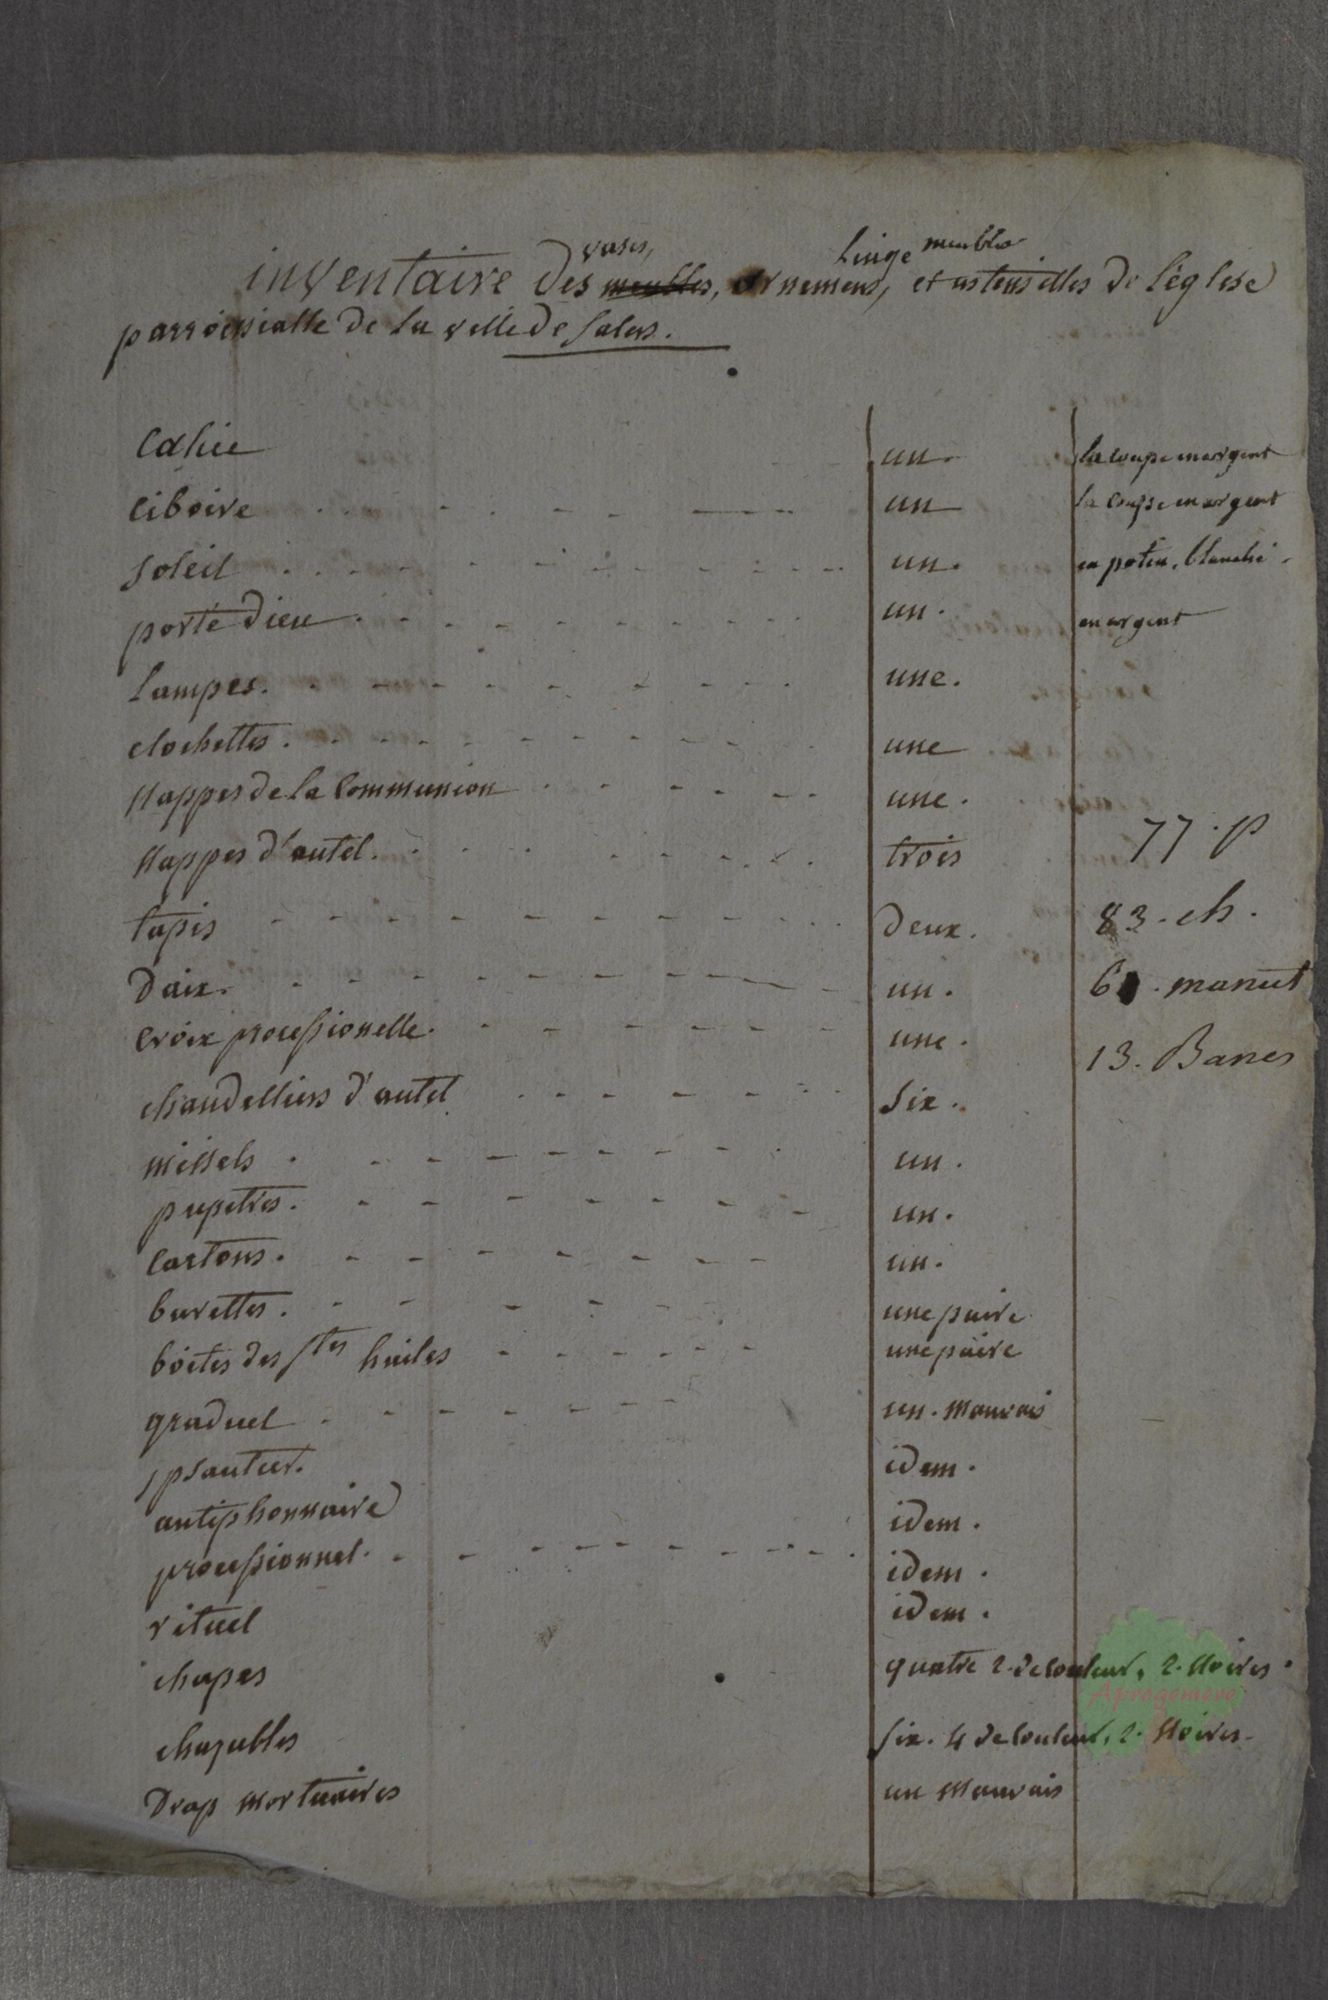 vases, linge meubles
inventaire des meubles, ornemens, et ustensilles de léglise
parroissialle de la ville de salers.
Calice un. la coupe en argent
Ciboire un la coupe en argent
soleil un. en potin, blanchi.
porte dieu un. en argent
lampes. une.
clochettes. une
Nappes de la Communion une.
Nappes d'autel. trois 77. p
tapis deux. 83. ch.
Daix. un. 61. manut
Croix processionelle. une. 13. Bancs
chandelliers d'autel six.
missels un.
pupetres. un.
Cartons. un.
burettes. une paire
boites des stes huiles une paire
graduel un. mauvais
psautier. idem.
antiphonnaire idem.
processionnel. idem.
rituel idem.
chapes quatre 2. de couleur, 2. Noires.
Aprogemere
chasubles six. 4 de couleur, 2. Noires.
Drap mortuaires un mauvais